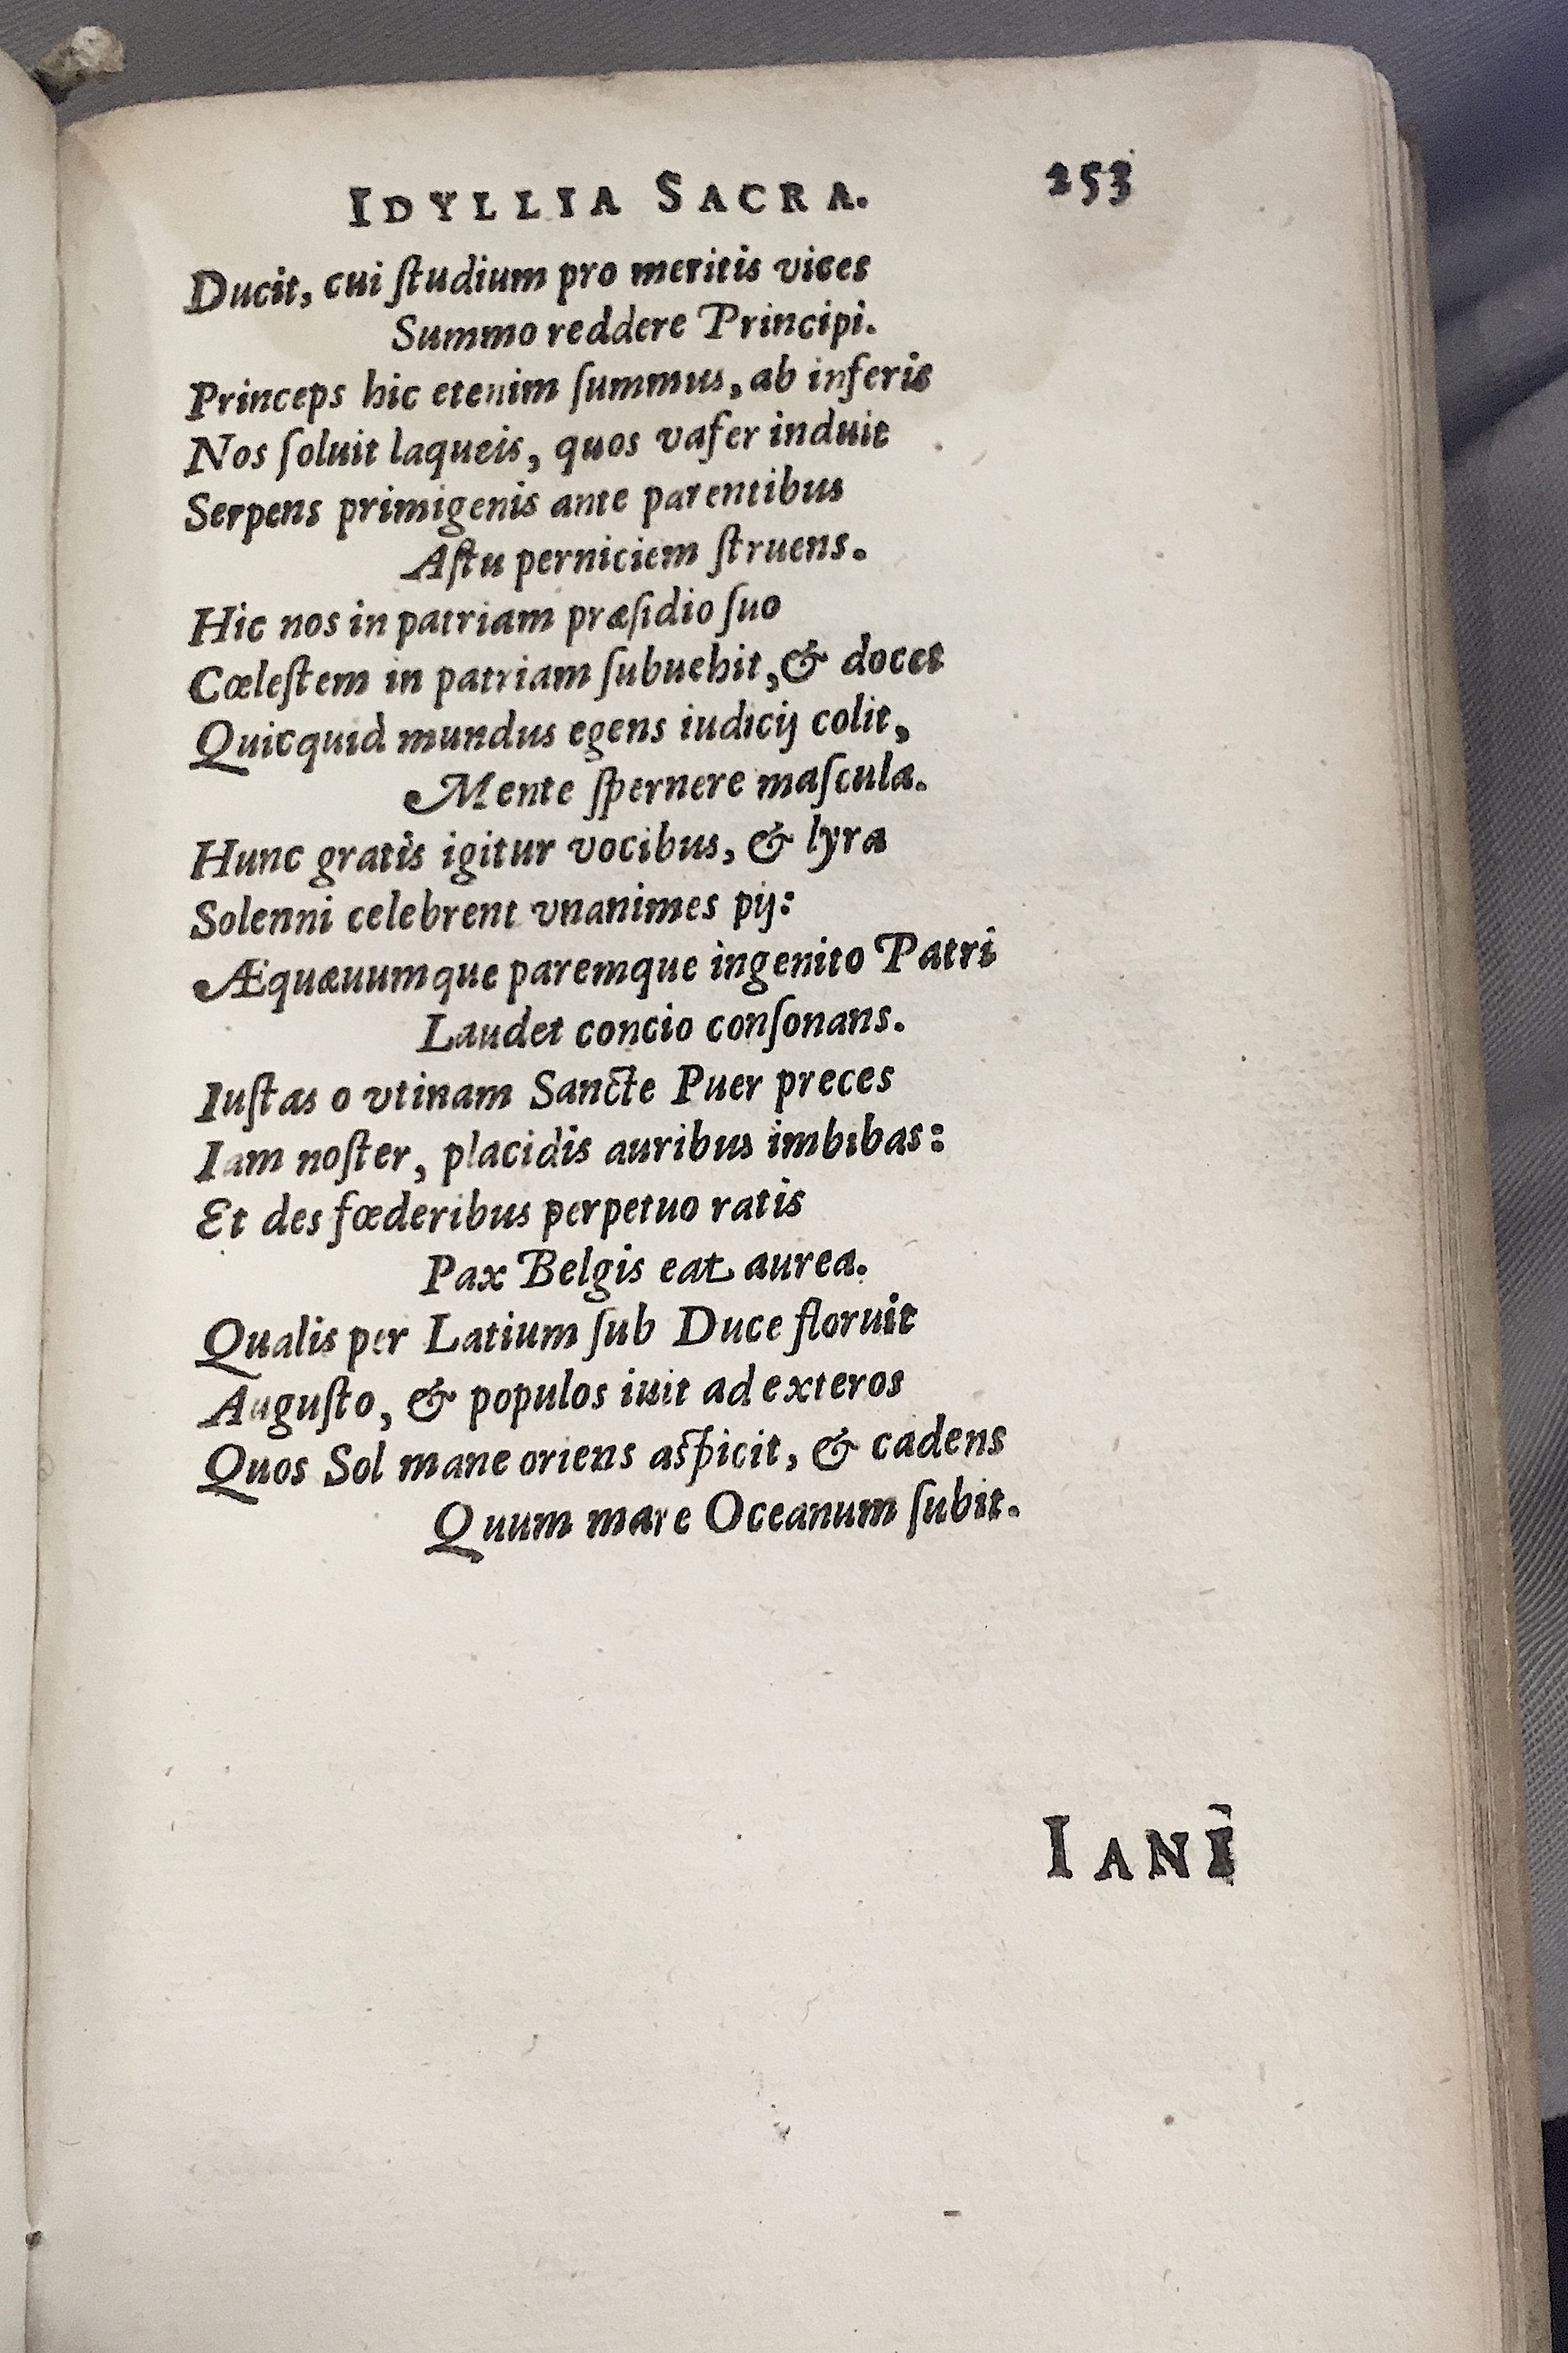 IDYLLIA SACRA. 253
Ducit, cui ſtudium pro meritis vices
Summo reddere Principi.
Princeps hic etenim ſummus, ab inferis
Nos ſoluit laqueis, quos vafer induit
Serpens primigenis ante parentibus
Aſtu perniciem ſtruens.
Hic nos in patriam præſidio ſuo
Cœleſtem in patriam ſubuehit, & docet
Quicquid mundus egens iudicij colit,
Mente ſpernere maſcula.
Hunc gratis igitur vocibus, & lyra
Solenni celebrent vnanimes pij:
Æquæuumque paremque ingenito Patri
Laudet concio conſonans.
Iuſtas o vtinam Sancte Puer preces
Iam noſter, placidis auribus imbibas:
Et des fœderibus perpetuo ratis
Pax Belgis eat aurea.
Qualis per Latium ſub Duce floruit
Auguſto, & populos iuit ad exteros
Quos Sol mane oriens aſpicit, & cadens
Quum mare Oceanum ſubit.
IANI